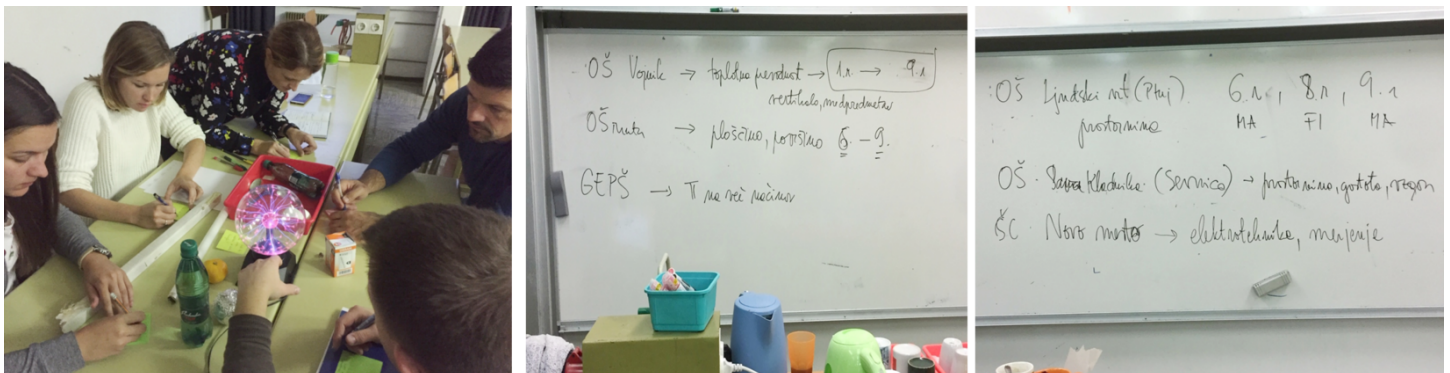 OŠ Vojnik → toplotna prevodnost → 1.r. → 9.r
vertikalo, medpredmetno
OŠ → ploščina, površina 6. - 9.
GEPŠ → π na več načinov
OŠ Ljudski vrt (Ptuj) 6.r., 8.r, 9.r
prostornina MA FI MA
OŠ Sava Kladnika (Sevnica) → prostornina, gostota, vzgon
ŠC Novo mesto → elektrotehnika, merjenje